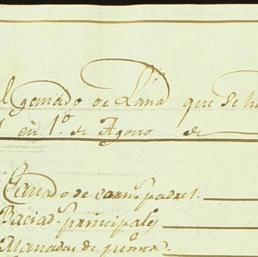 el ganado de Lana que se ha
en 1.º de Agosto de
Ganado de carn.s padres
Baciad.s principales
Manadas de primra